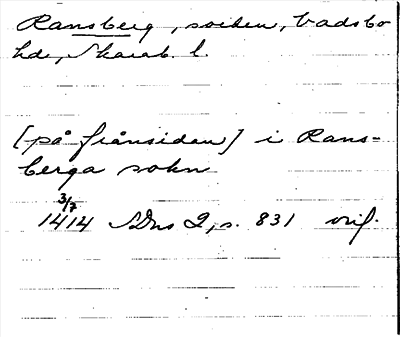 Ransberg, socken, Vadsbo
hd, Skarab. l.
[på frånsidan] i Rans-
berga sokn
3/7
1414 SDns 2, s. 831 orig.